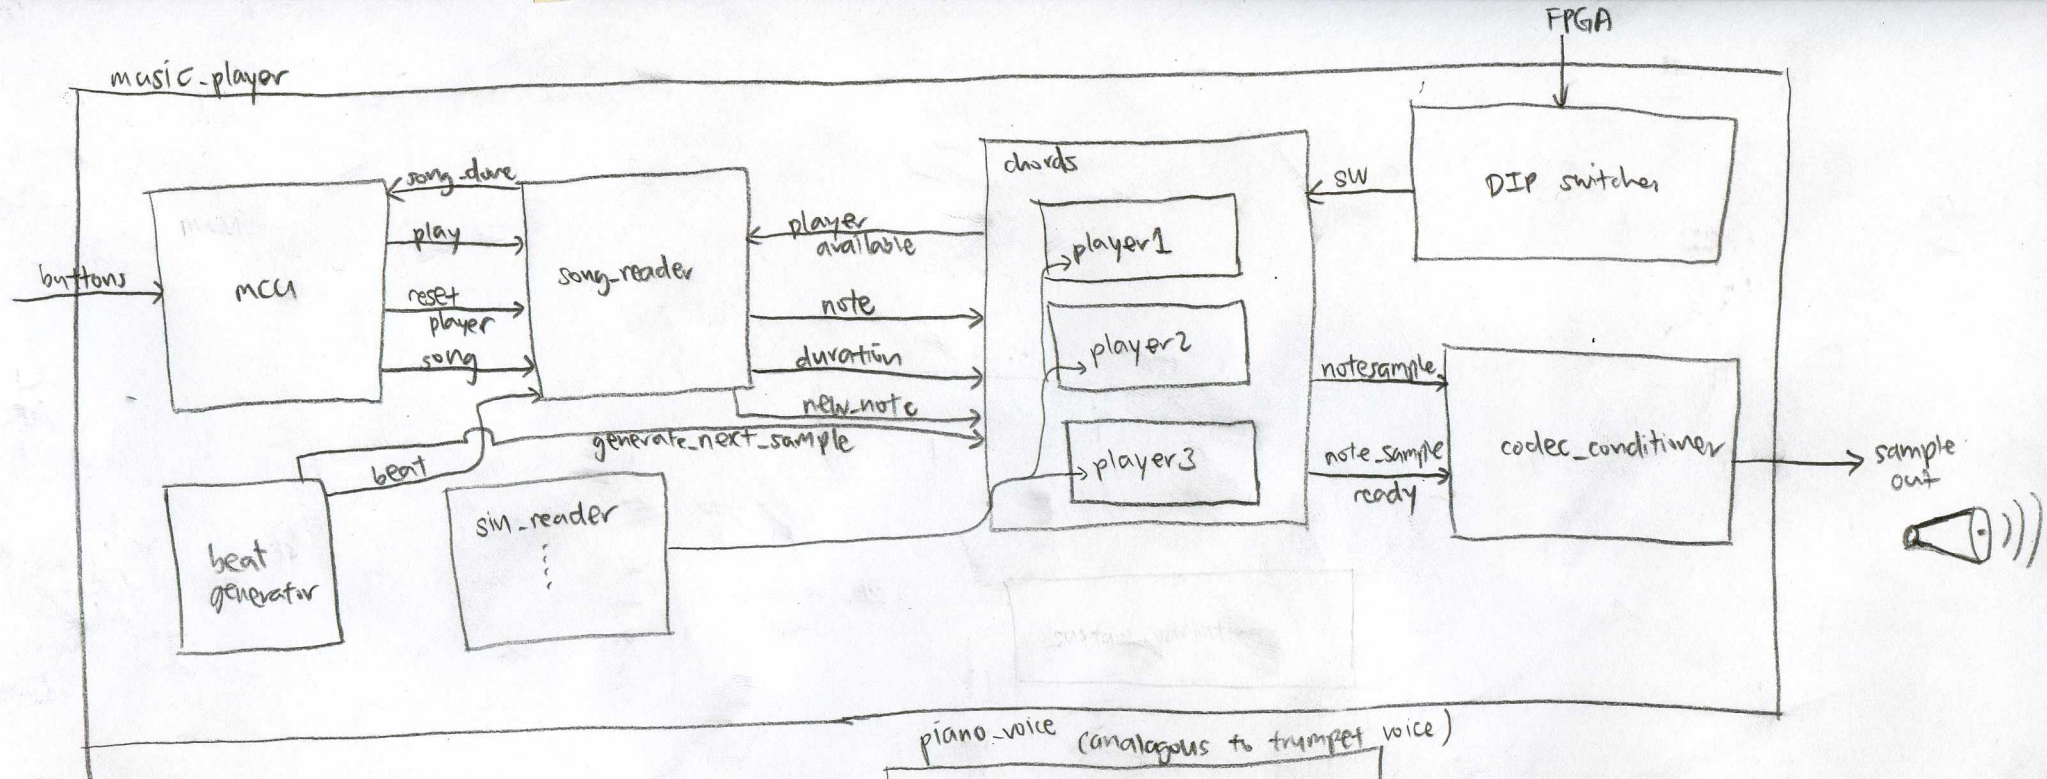 FPGA
music_player
song_done
play
reset
player
song
buttons
MCU
song_reader
player
available
note
duration
new_note
generate_next_sample
beat
beat
generator
sin_reader
chords
player1
player2
player3
sw
DIP switches
notesample
note_sample
ready
codec_conditioner
sample
out
piano_voice (analagous to trumpet voice)